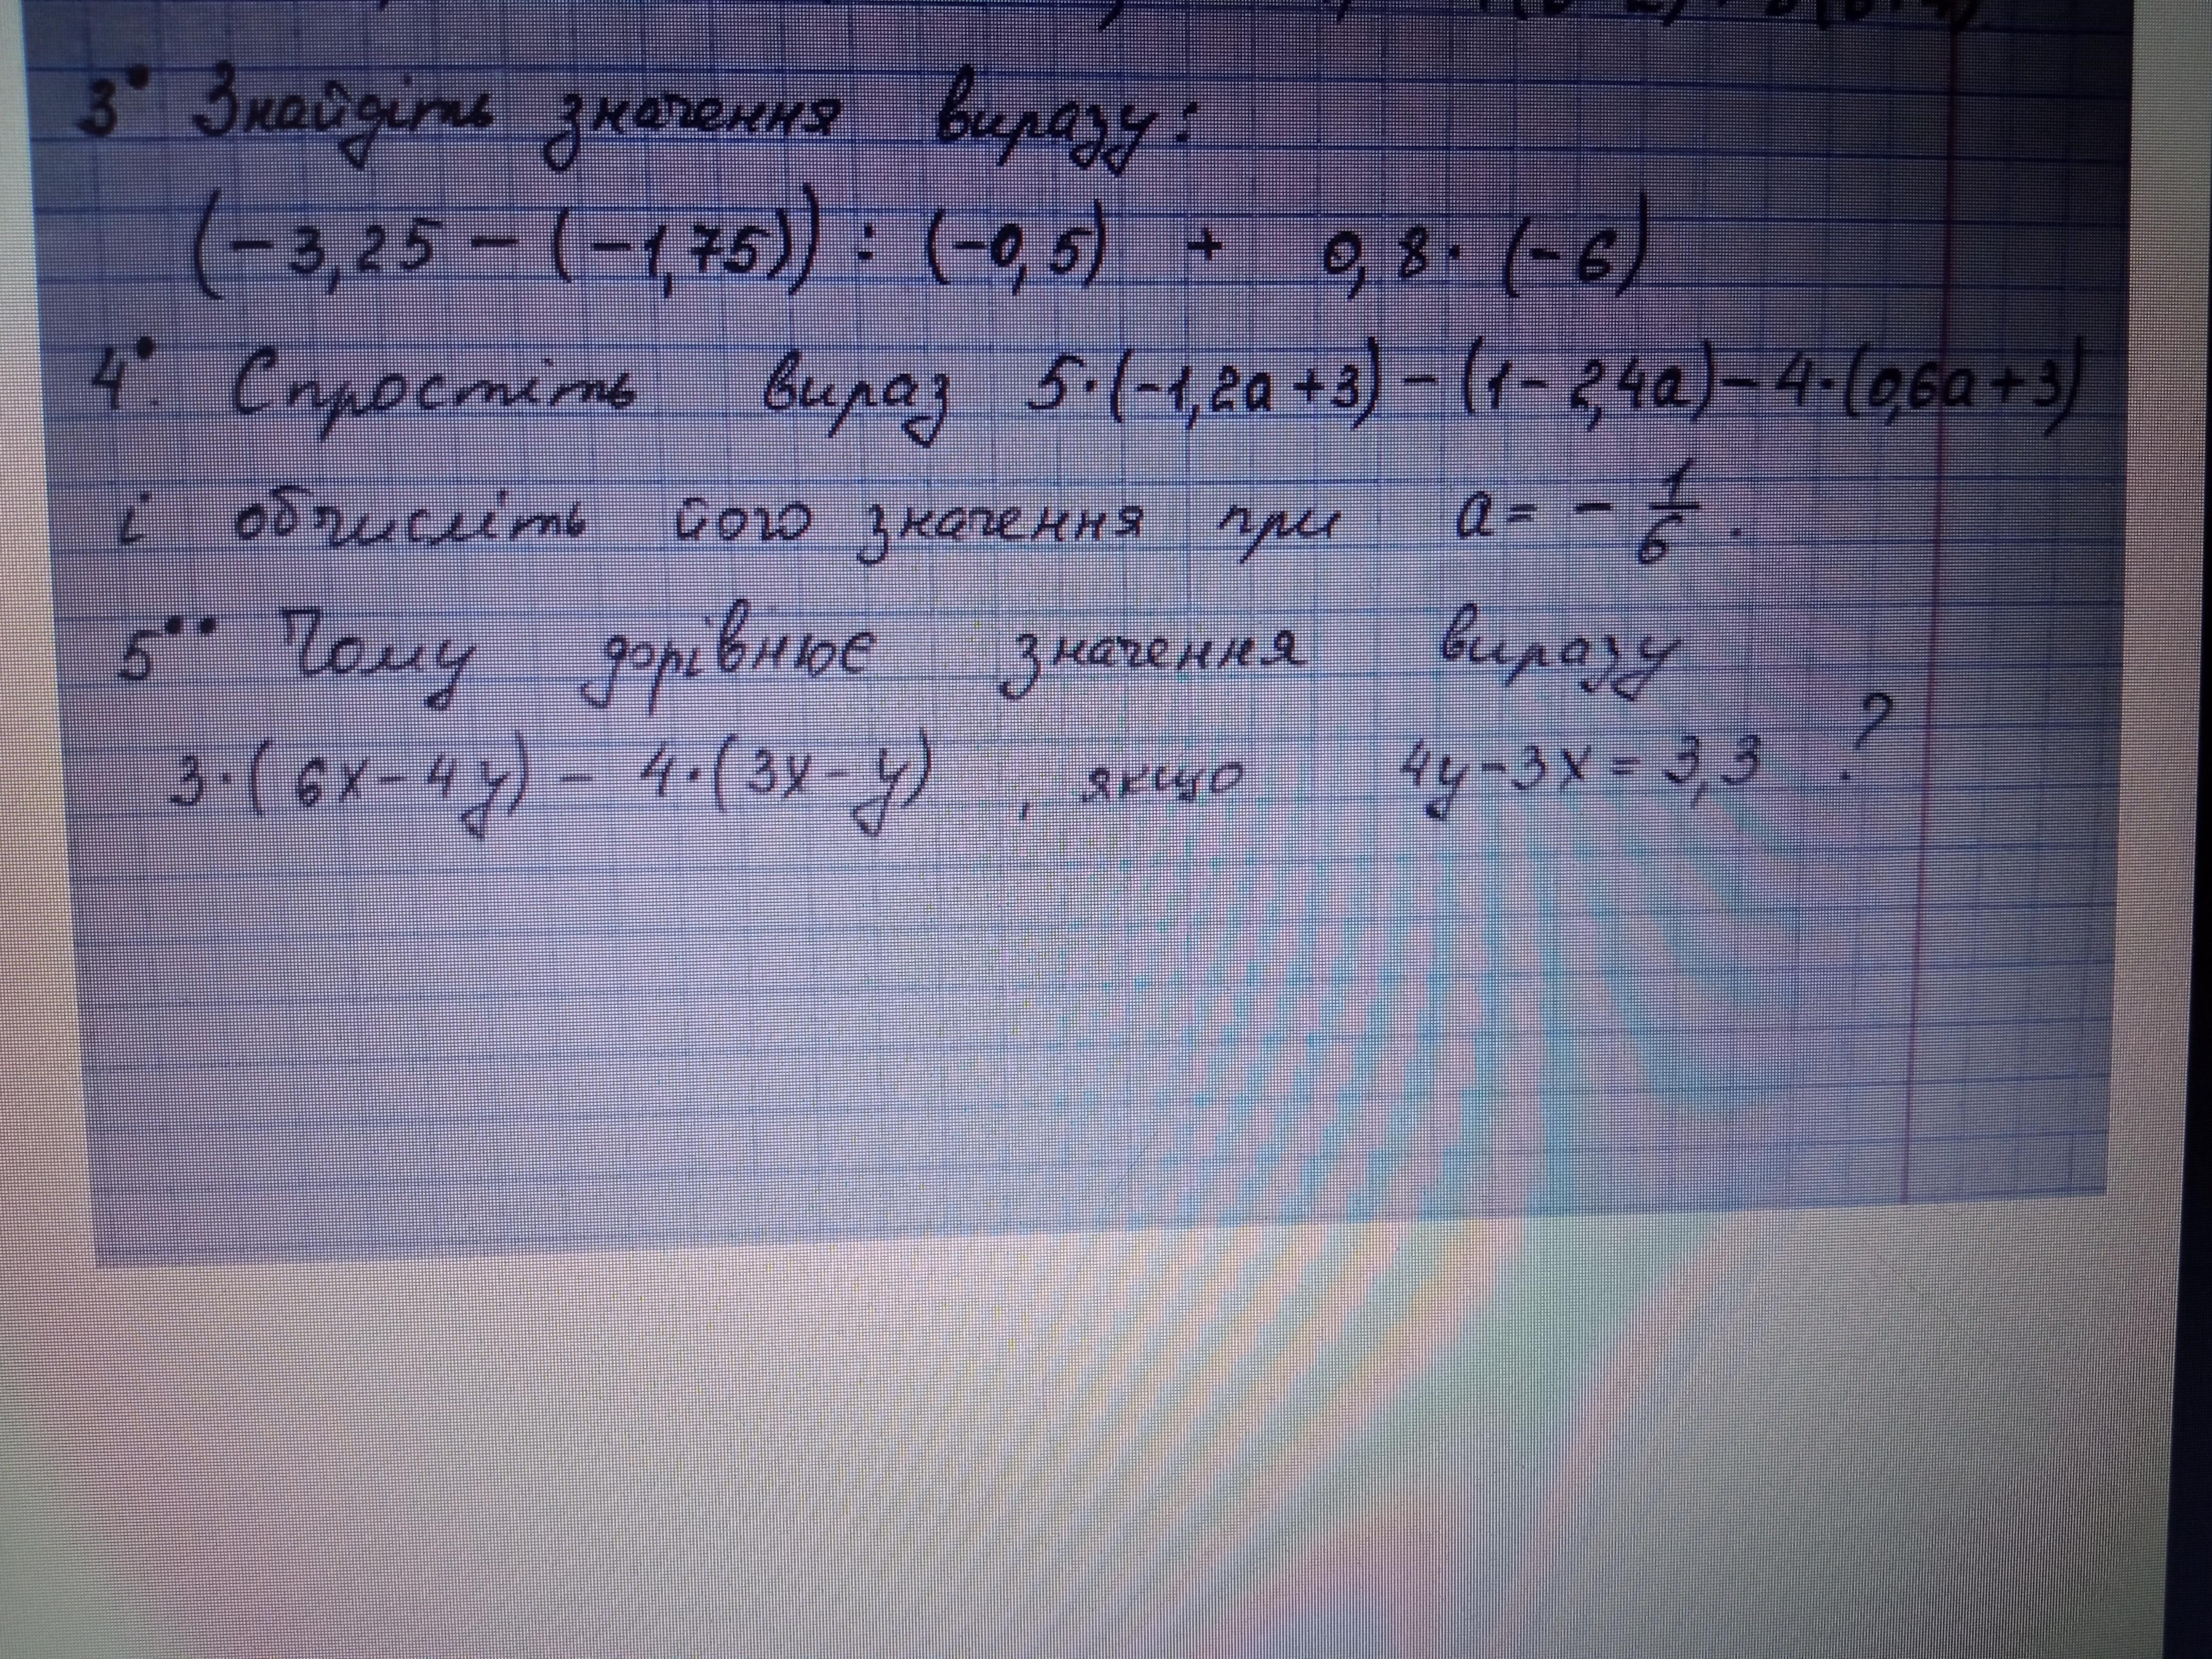 3• Знайдіть значення виразу:
(-3,25 - (-1,75)) : (-0,5) + 0,8 · (-6)
4•. Спростіть вираз 5·(-1,2a+3) - (1 - 2,4a) - 4·(0,6a+3)
і обчисліть його значення при a = - 1/6.
5•• Чому дорівнює значення виразу
3·(6x-4y) - 4·(3x-y), якщо 4y-3x = 3,3 ?